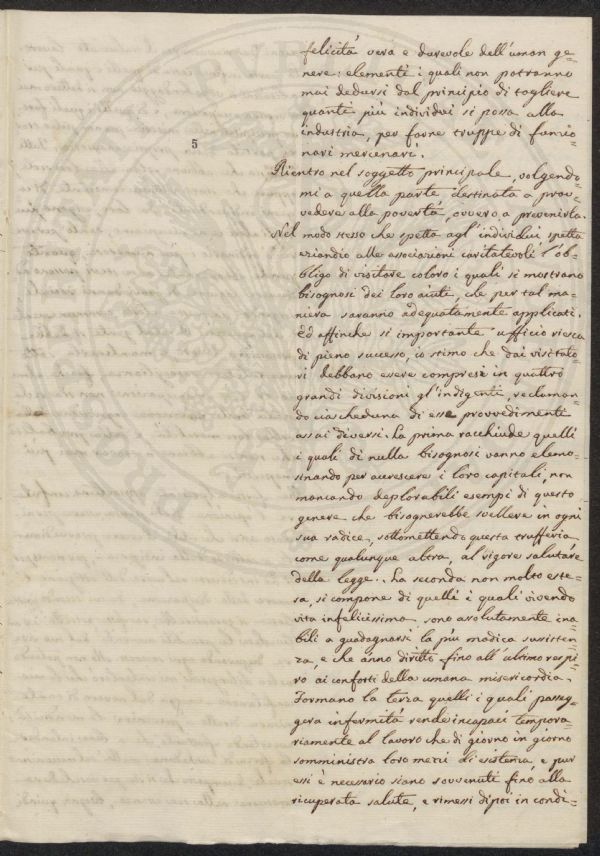 felicità vera e durevole dell'uman ge=
nere: elementi i quali non potranno
mai dedursi dal principio di togliere
quanti più individui si possa alla
industria, per farne truppe di funzio=
nari mercenari.
5
Rientro nel soggetto principale, volgendo=
mi a quella parte destinata a prov=
vedere alla povertà, ovvero a prevenirla.
Nel modo stesso che spetta agl'individui spetta
eziandio alle associazioni caritatevoli l'ob=
bligo di visitare coloro i quali si mostrano
bisognosi dei loro aiuti, che per tal ma=
niera saranno adeguatamente applicati.
Ed affinche si importante ufficio riesca
di pieno successo, io stimo che dai visitato=
ri debbano essere compresi in quattro
grandi divisioni gl'indigenti, reclaman=
do ciascheduna di esse provvedimenti
assai diversi. La prima racchiude quelli
i quali di nulla bisognosi vanno elemo=
sinando per accrescere i loro capitali, non
mancando deplorabili esempi di questo
genere che bisognerebbe svellere in ogni
sua radice, sottomettendo questa trufferia
come qualunque altra, al rigore salutare
della legge. La seconda non molto este=
sa, si compone di quelli i quali vivendo
vita infelicissima sono assolutamente ina=
bili a guadagnarsi la più modica sussisten=
za, e che anno diritto fino all'ultimo respi=
ro ai conforti della umana misericordia.
Formano la terza quelli i quali passeg=
gera infermità rende incapaci tempora=
riamente al lavoro che di giorno in giorno
somministra loro mezzi di esistenza, e pur
essi è necessario siano sovvenuti fino alla
ricuperata salute, e rimessi dipoi in condi=